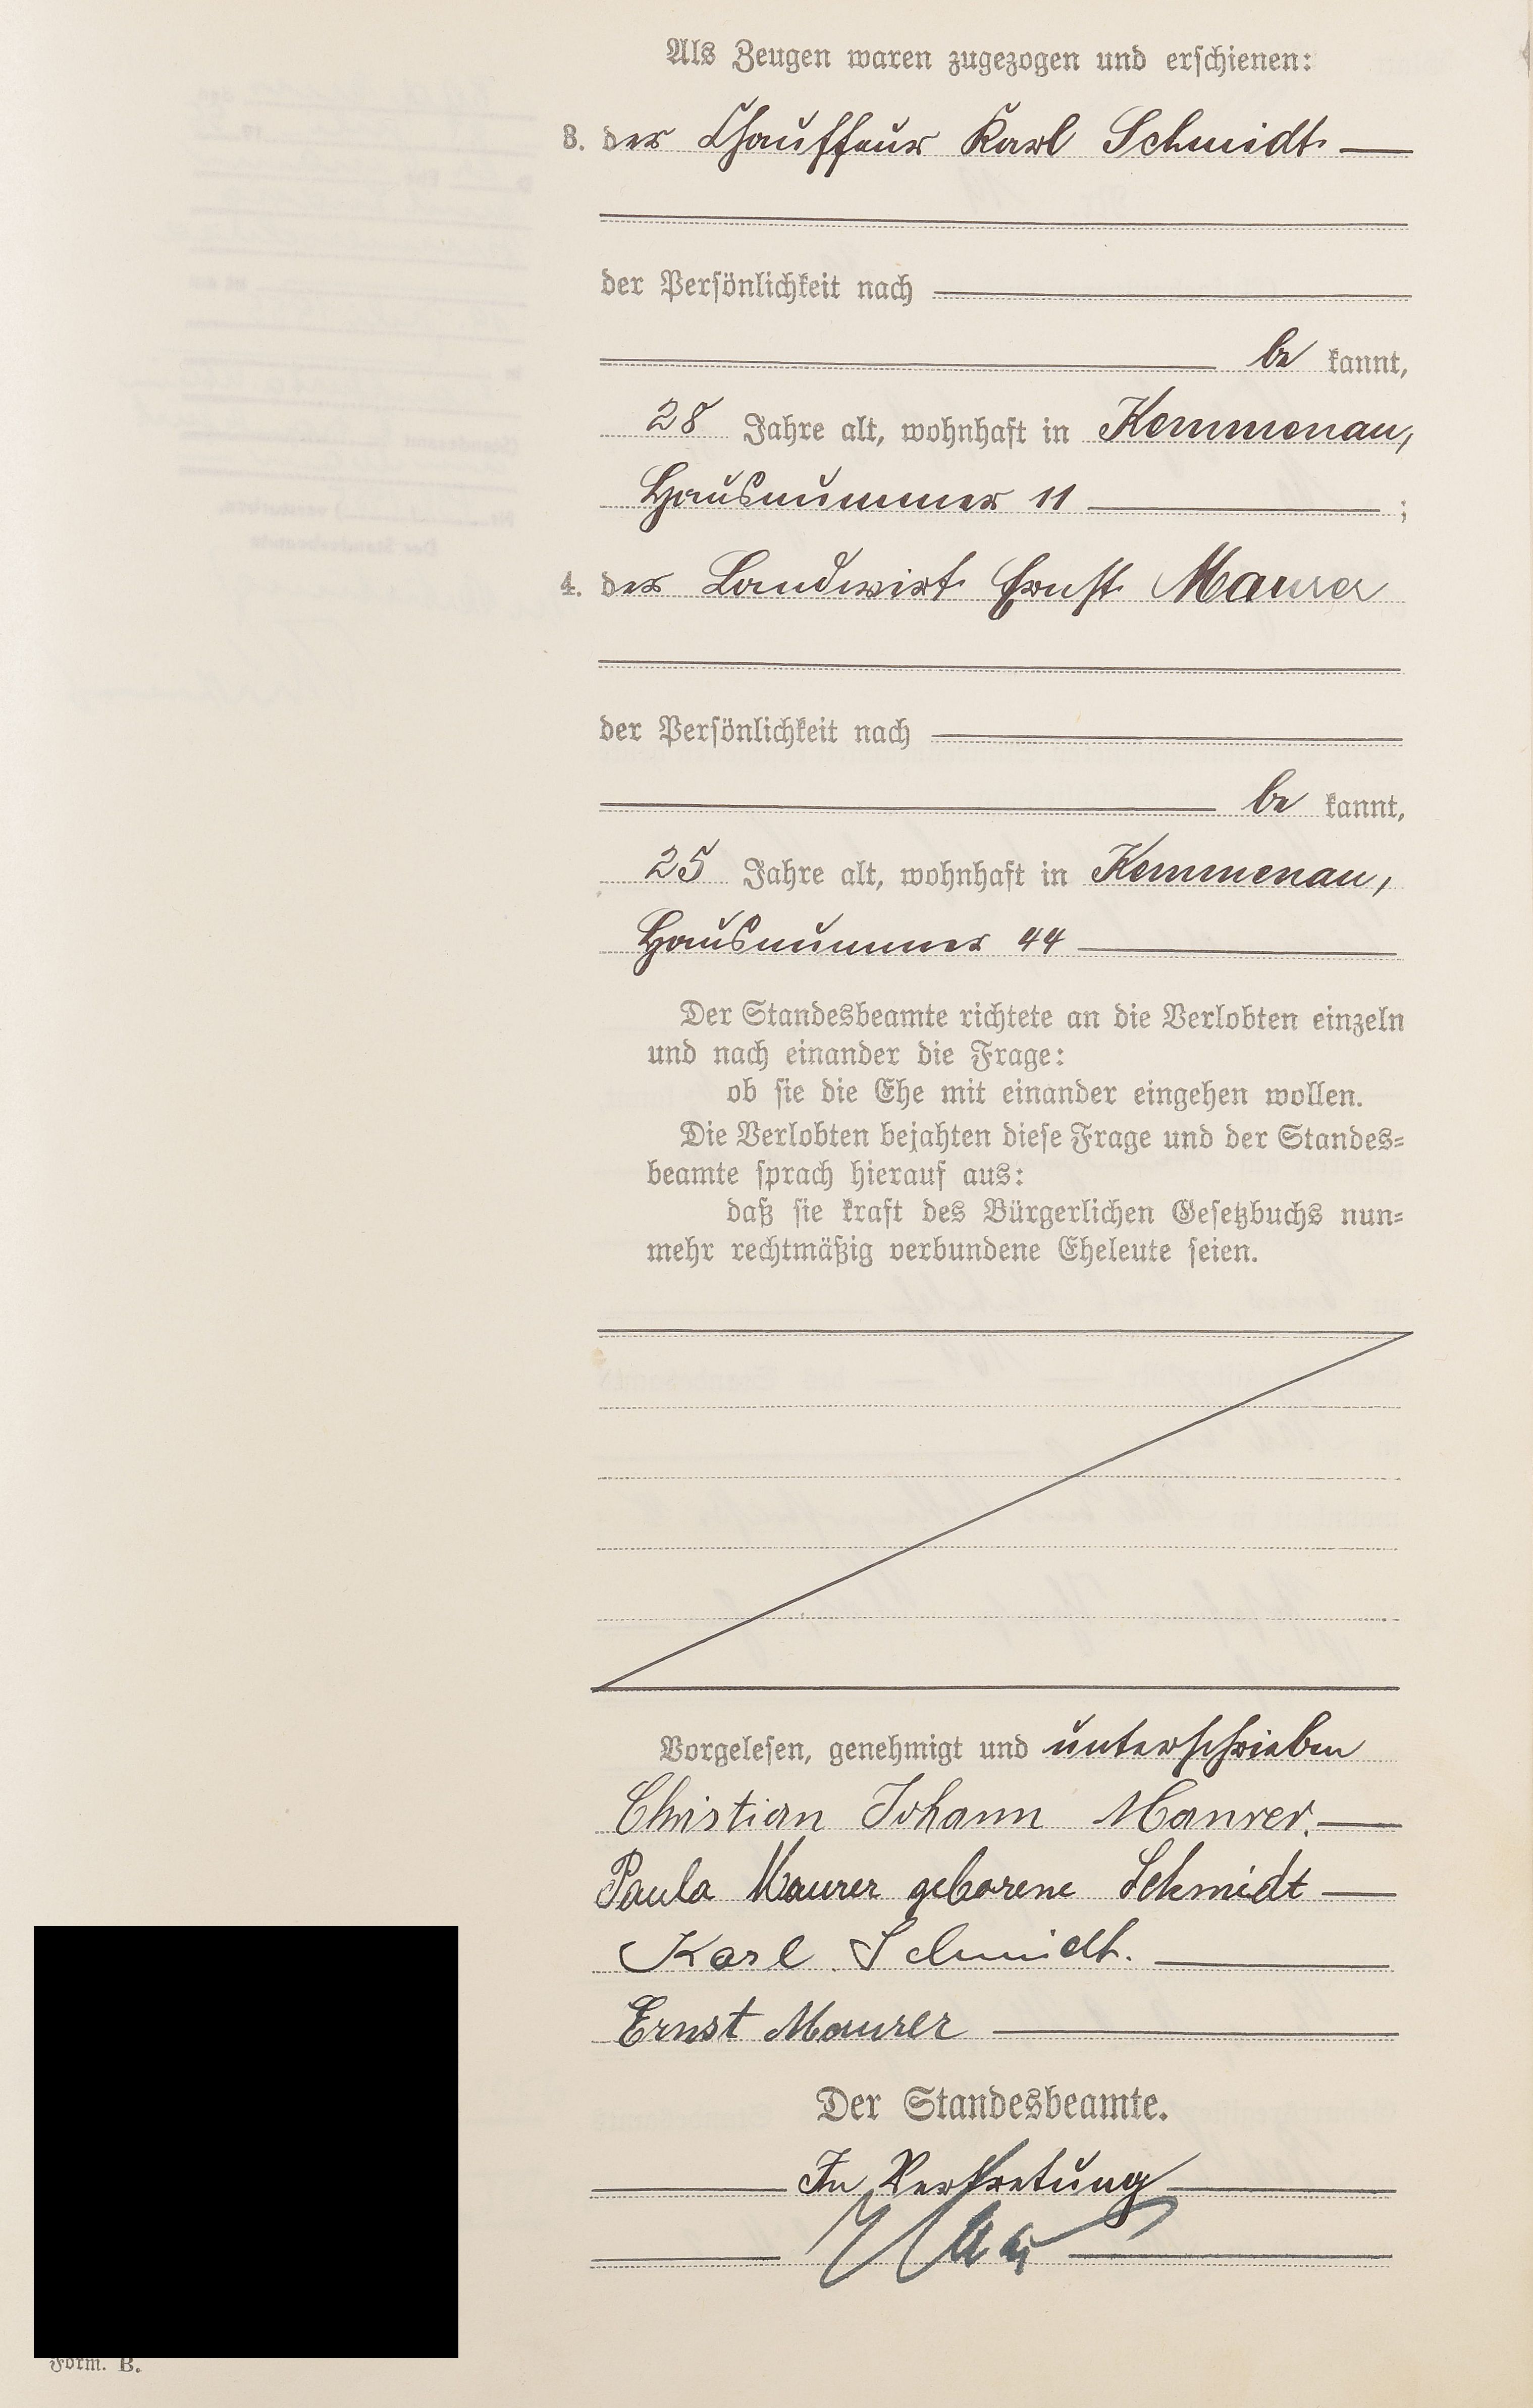 Als Zeugen waren zugezogen und erschienen:
3. der Chauffeur Karl Schmidt
der Persönlichkeit nach
be kannt,
28 Jahre alt, wohnhaft in Kemmenau,
Hausnummer 11 ;
4. der Landwirt Ernst Maurer
der Persönlichkeit nach
be kannt,
25 Jahre alt, wohnhaft in Kemmenau,
Hausnummer 44
Der Standesbeamte richtete an die Verlobten einzeln
und nach einander die Frage:
ob sie die Ehe mit einander eingehen wollen.
Die Verlobten bejahten diese Frage und der Standes=
beamte sprach hierauf aus:
daß sie kraft des Bürgerlichen Gesetzbuchs nun=
mehr rechtmäßig verbundene Eheleute seien.
Vorgelesen, genehmigt und unterschrieben
Christian Johann Maurer.
Paula Maurer geborene Schmidt
Karl Schmidt.
Ernst Maurer
Der Standesbeamte.
In Vertretung
Form. B.